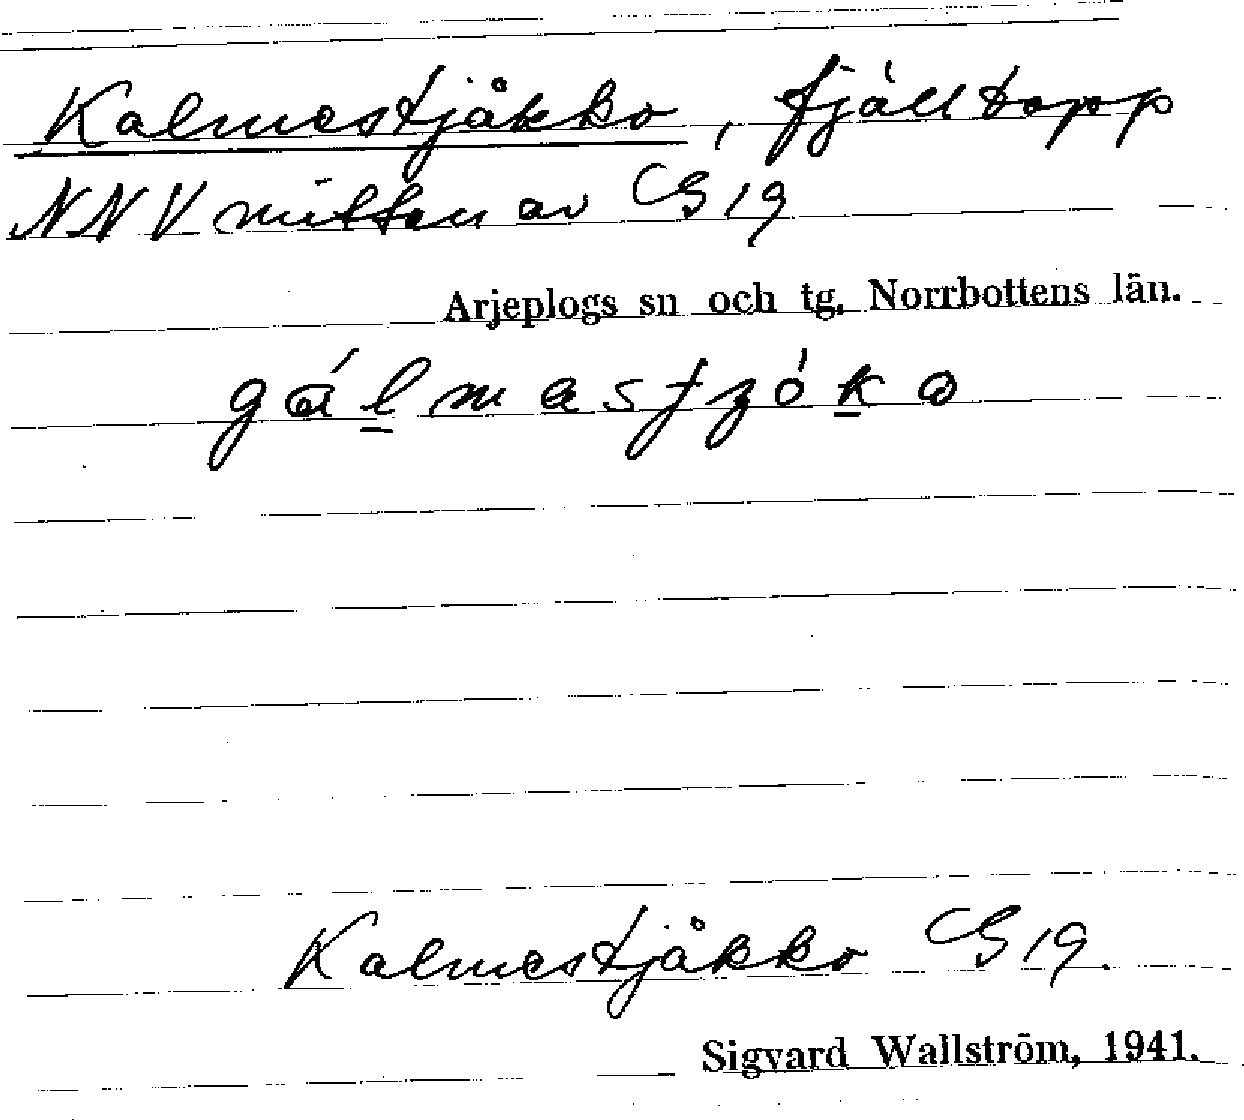 Kalmestjåkko, fjälltopp
NNV mitten av G 19
Arjeplogs sn och tg. Norrbottens län.
Kalmestjåkko G 19.
Sigvard Wallström, 1941.